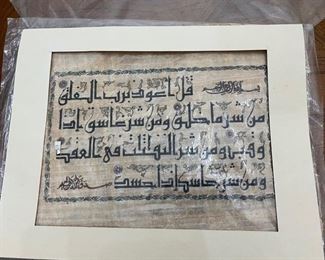 قل اعوذ برب الفلق
من شر ما خلق ومن شر غاسق اذا
وقب ومن شر النفاثات في العقد
ومن شر حاسد اذا حسد